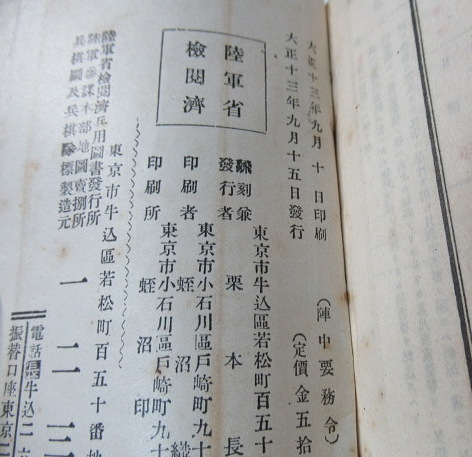 大正十三年九月十日印刷
大正十三年九月十五日發行
(陣中要務令)
(定價金五拾
陸軍省
檢閲濟
飜刻兼
發行者
東京市牛込區若松町百五十
栗本長
印刷者
東京市小石川區戸崎町九十
蛭沼
印刷所
東京市小石川區戸崎町九十
蛭沼印
東京市牛込區若松町百五十番地
陸軍省檢閲濟兵用圖書發行所
陸軍參謀本部地圖賣捌所
兵棋圖及兵棋隊標製造元
一二三
電話牛込二
振替口座東京二